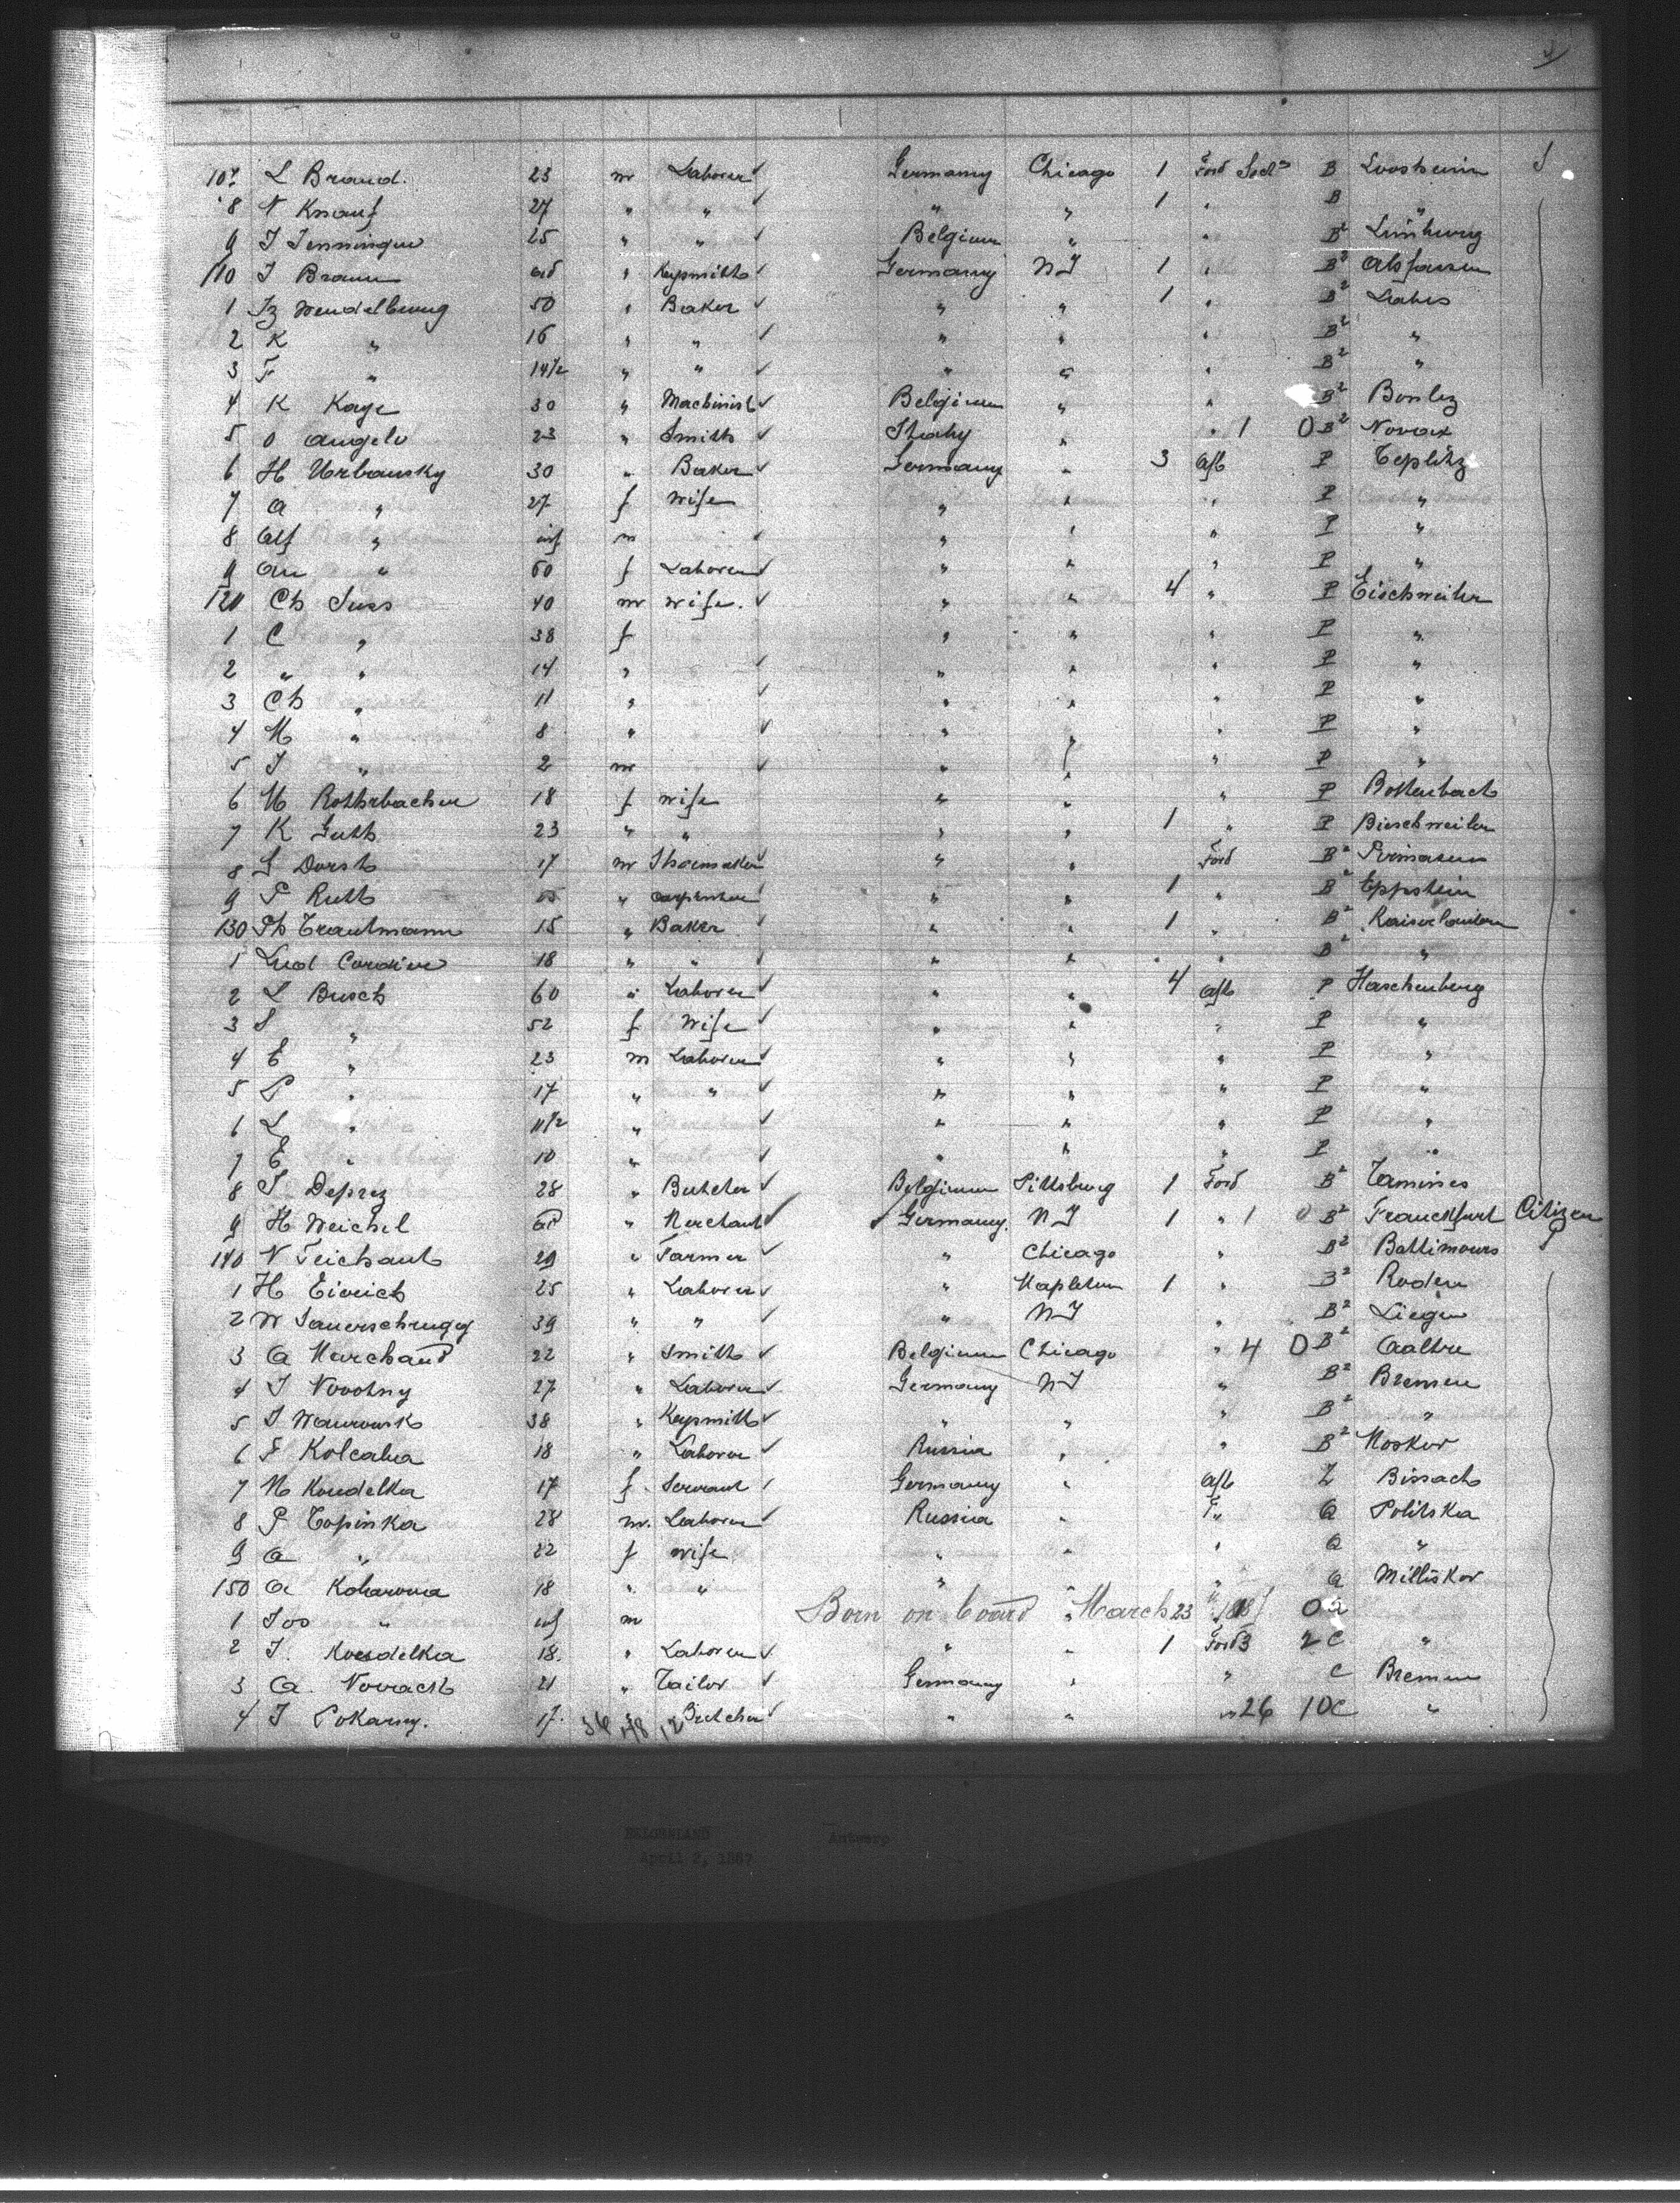 107 L Braud. 23 m Laborer Germany Chicago 1 Ford Sects B Loosheim
8 N Knauf 27 " " " " 1 " B "
9 J Jenninger 25 " " Belgium " " B2 Limburg
110 J Braun ad " Keysmith Germany NY 1 " B2
1 Fz Wendelburg 50 " Baker " " 1 " B2 Labes
2 K " 16 " " " " " B2 "
3 F " 14 1/2 " " " " " B2 "
4 K Kaye 30 " Machinist Belgium " " B2 Bonlez
5 O Angelo 23 " Smith Italy " " 1 0 B2 Novax
6 H Urbansky 30 " Baker Germany " 3 aft P Teplitz
7 A " 27 f wife " " " P "
8 Alf " inf m " " " P "
9 An " 60 f Laborer " " " P "
120 Ch Suss 40 m wife. " " 4 " P Eischweiler
1 C " 38 f " " " P "
2 " " 14 " " " " P "
3 Ch " 11 " " " " P "
4 M " 8 " " " " P "
5 J " 2 m " " " P "
6 M Rothrbacher 18 f wife " " " P Bottenbach
7 K Guth 23 " " " " 1 " P Bieschweiler
8 G Dorst 17 m Shoemaker " " Ford B2 Pirmasens
9 P Ruth " carpenter " " 1 " B2 Eppstein
130 Ph Trautmann 15 " Baker " " 1 " B2 Kaiserlautern
1 Lud Cordier 18 " " " " " B2 "
2 L Busch 60 " Laborer " " 4 aft P Haschenberg
3 S " 52 f Wife " " " P "
4 E " 23 m Laborer " " " P "
5 P " 17 " " " " " P "
6 L " 11 1/2 " " " " P "
7 E " 10 " " " " P "
8 J Deprez 28 " Butcher Belgium Pittsburg 1 Ford B2 Tamines
9 H Weichel ad " Merchant Germany. NY 1 " 1 0 B2 Franckfurt Citizen
140 N Teichant 29 " Farmer " Chicago " B2 Battimours
1 H Eirich 25 " Laborer " Mapleton 1 " B2 Roden
2 W Sauerschnigg 39 " " " NY " B2 Liegen
3 A Marchand 22 " Smith Belgium Chicago " 4 0 B2 Aaltre
4 J Novotny 27 " Laborer Germany NY " B2 Bremen
5 J Wawrowsk 38 " Keysmith " " " B2 "
6 F Kolcalua 18 " Laborer Russia " " B2 Moskov
7 M Koudelka 17 f. Servant Germany " aft Z Bissach
8 P Topinka 28 m. Laborer Russia " F " A Politska
9 A " 22 f wife " " " A "
150 A Koharona 18 " " " " " A Milliskov
1 Jos " inf m Born on board " March 23 0 a
2 J. Koesdelka 18. " Laborer " " 1 Ford 3 2 C "
3 A. Novrach 21 " Tailor Germany " " C Bremen
4 J Pokarny. 17. 36 48 12 Butcher " " " 26 10 C "
BELGENLAND Antwerp
April 2, 1887